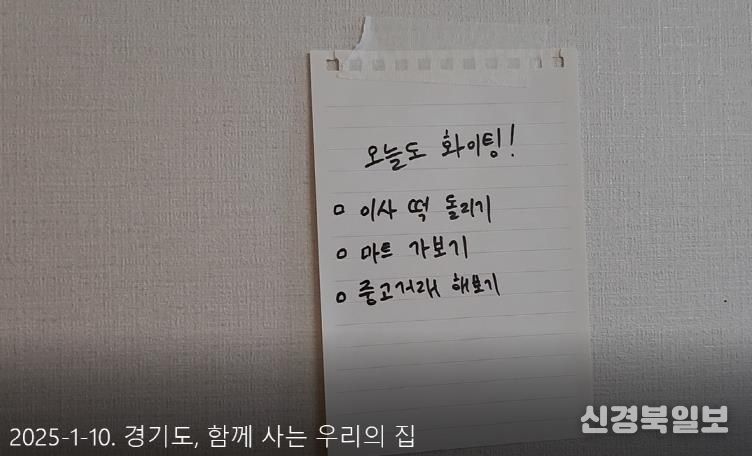 오늘도 화이팅!
□ 이사 떡 돌리기
□ 마트 가보기
□ 중고거래 해보기
신경북일보
2025-1-10. 경기도, 함께 사는 우리의 집